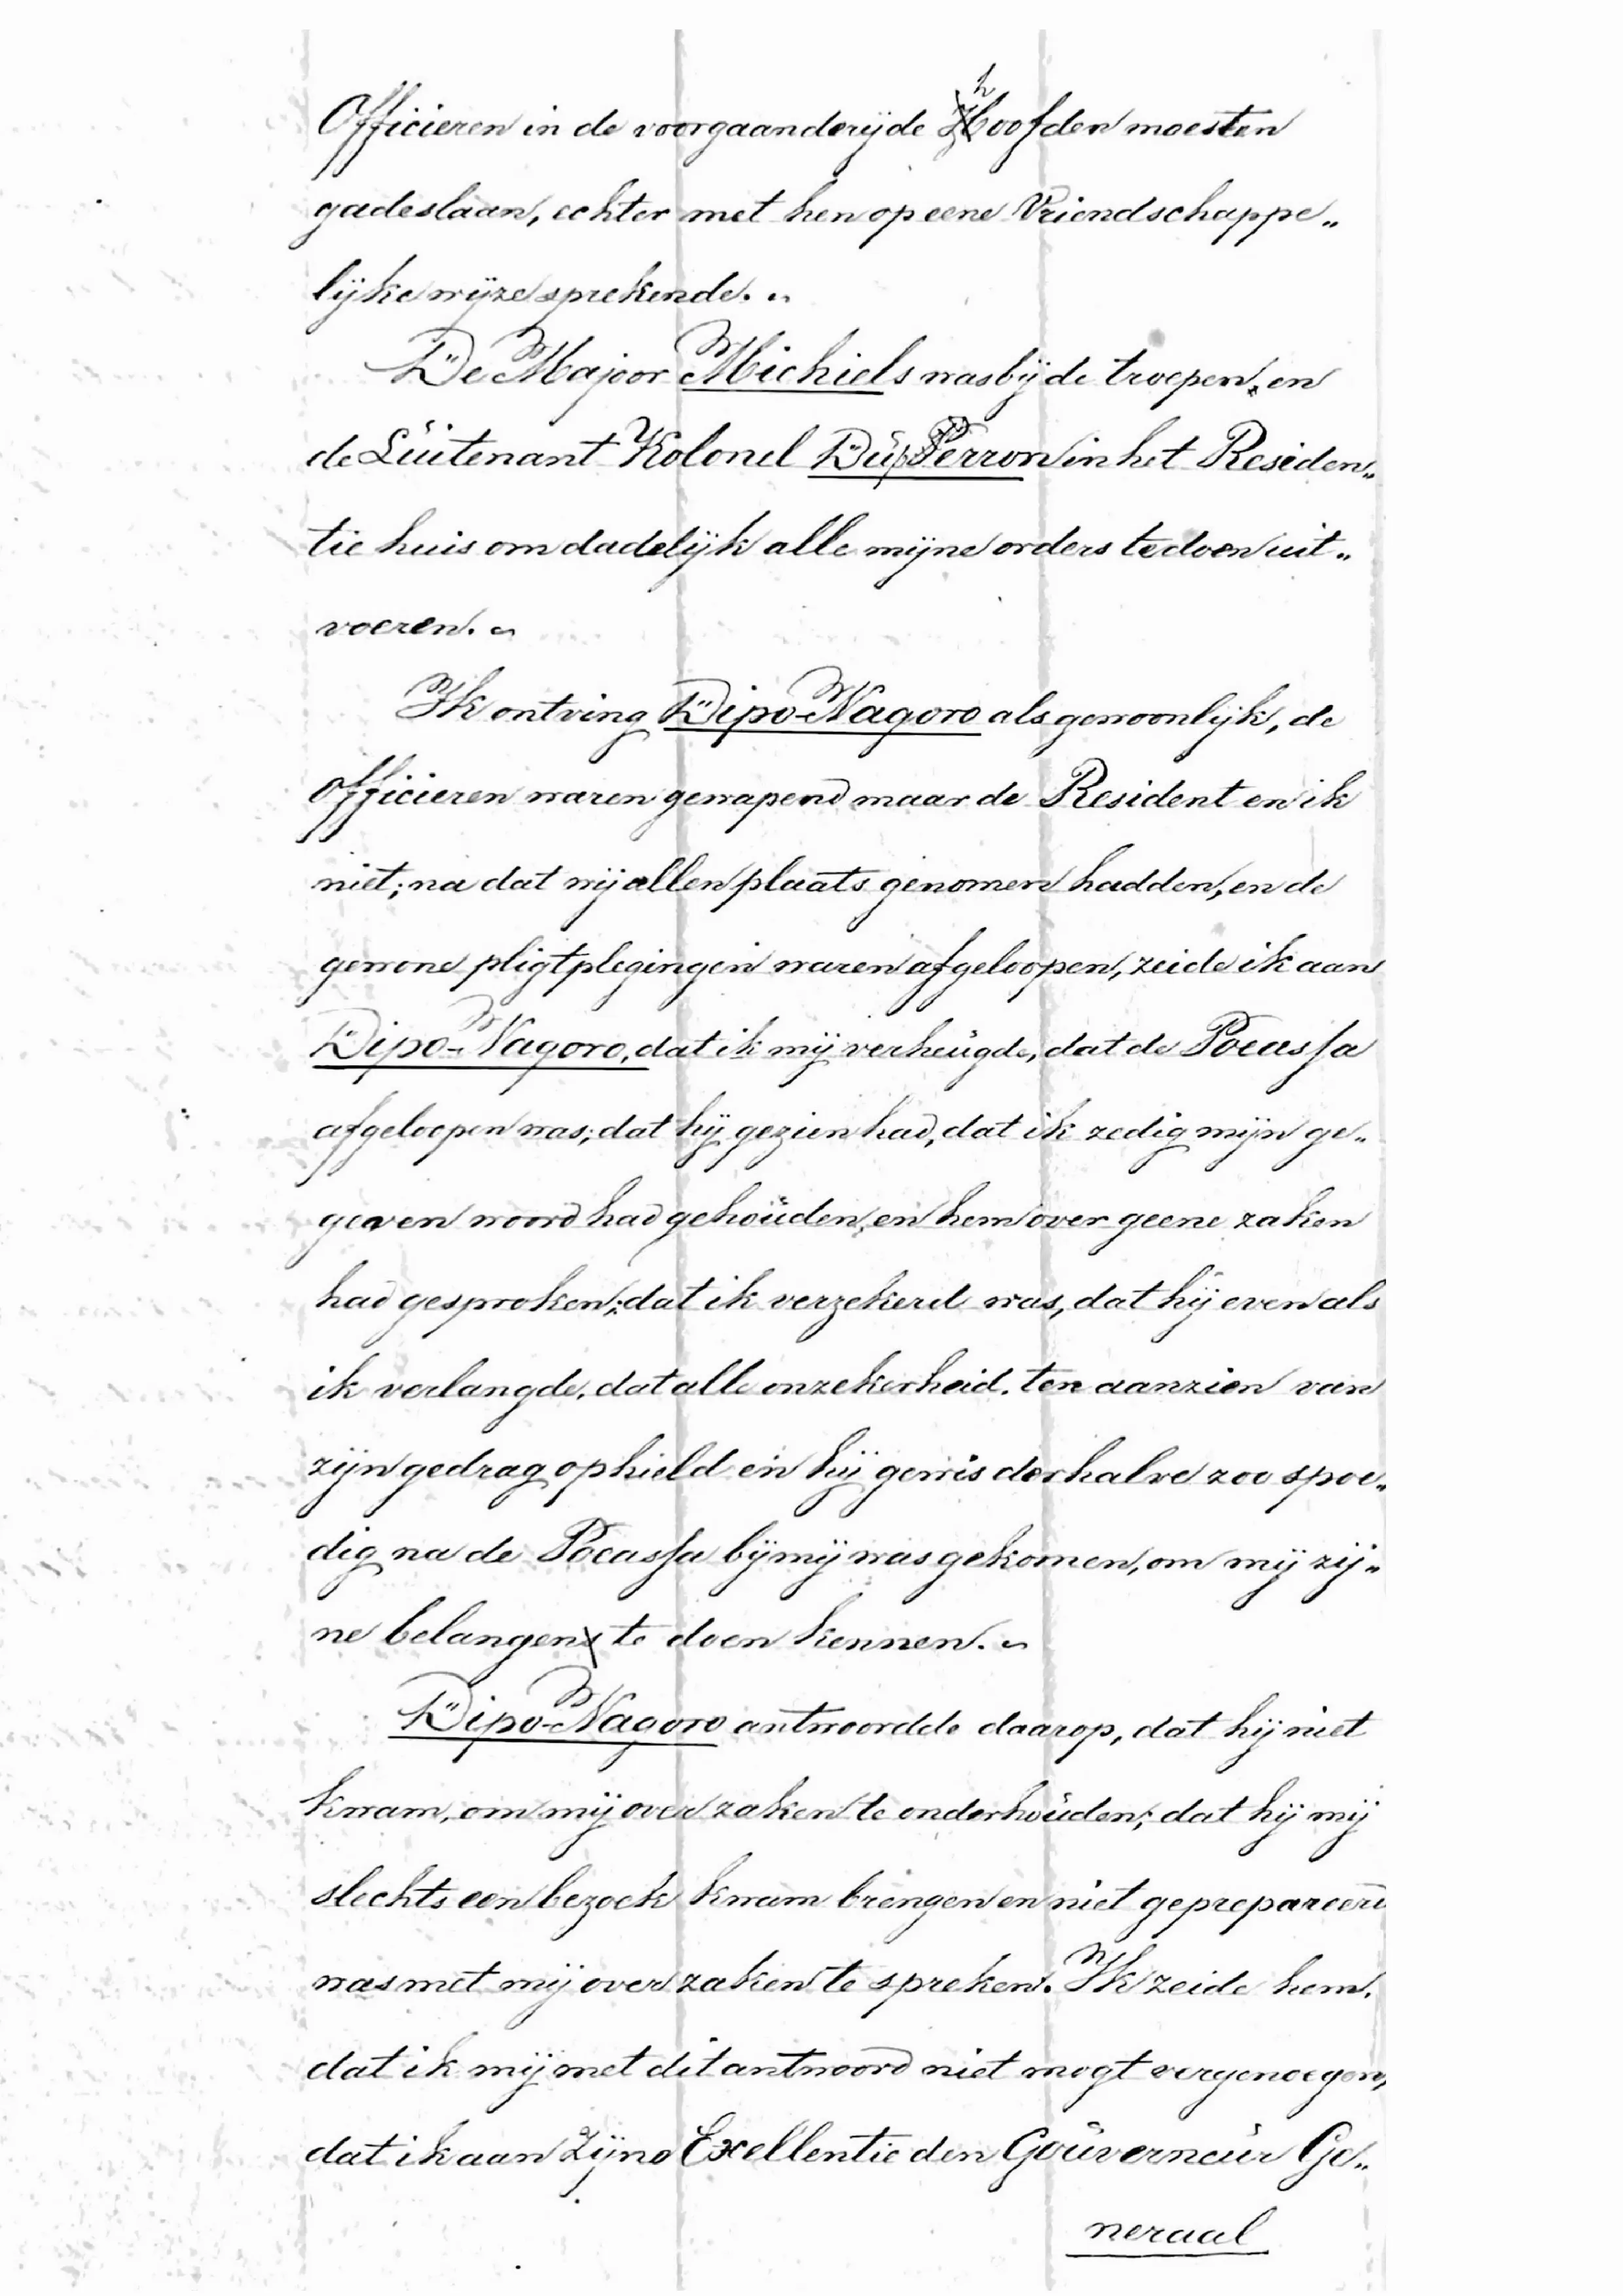 Officieren in de voorgaanderijde hoofden moesten
gadeslaan, echter met hen op eene Vriendschappe„
lijke wijze sprekende.
De Majoor Michiels was bij de troepen, en
de Luitenant Kolonel Du Perron in het Residen„
tie huis om dadelijk alle mijne orders te doen uit„
voeren.
Ik ontving Dipo-Nagoro als gewoonlijk, de
officieren waren gewapend maar de Resident en ik
niet; na dat wij allen plaats genomen hadden, en de
gewone pligtplegingen waren afgeloopen, zeide ik aan
Dipo-Nagoro, dat ik mij verheugde, dat de Poeassa
afgeloopen was; dat hij gezien had, dat ik zedig mijn ge„
geven woord had gehouden, en hem over geene zaken
had gesproken; dat ik verzekerd was, dat hij even als
ik verlangde, dat alle onzekerheid, ten aanzien van
zijn gedrag ophield en hij gewis derhalve zoo spoe„
dig na de Poeassa bij mij was gekomen, om mij zij„
ne belangen te doen kennen.
Dipo-Nagoro antwoordde daarop, dat hij niet
kwam, om mij over zaken te onderhouden; dat hij mij
slechts een bezoek kwam brengen en niet geprepareerd
was met mij over zaken te spreken. Ik zeide hem,
dat ik mij met dit antwoord niet mogt vergenoegen,
dat ik aan Zijne Excellentie den Gouverneur Ge„
neraal